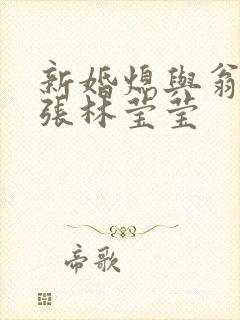 新婚熄與翁
張林莹莹
帝歌